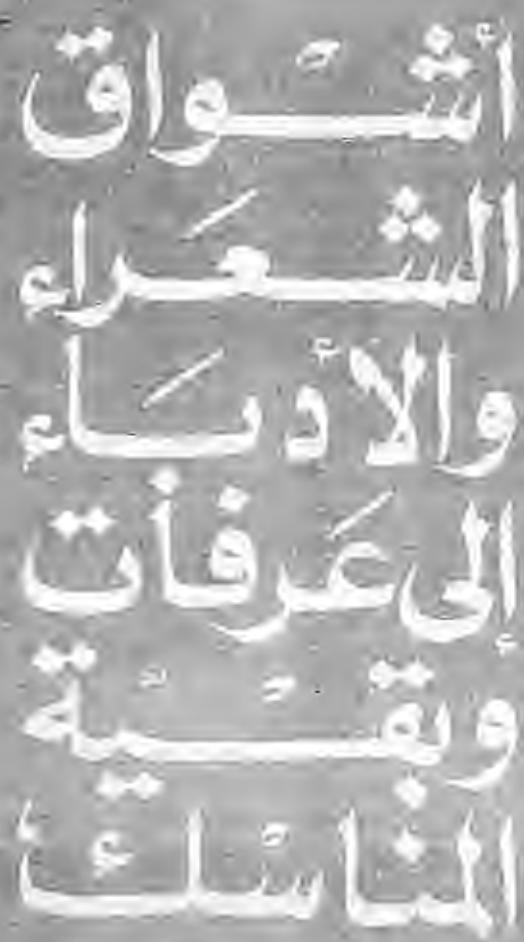 أشْواق
الشعَراء
والأدبَاء
إلى عَرفات
وبقْيّة
المناسْك